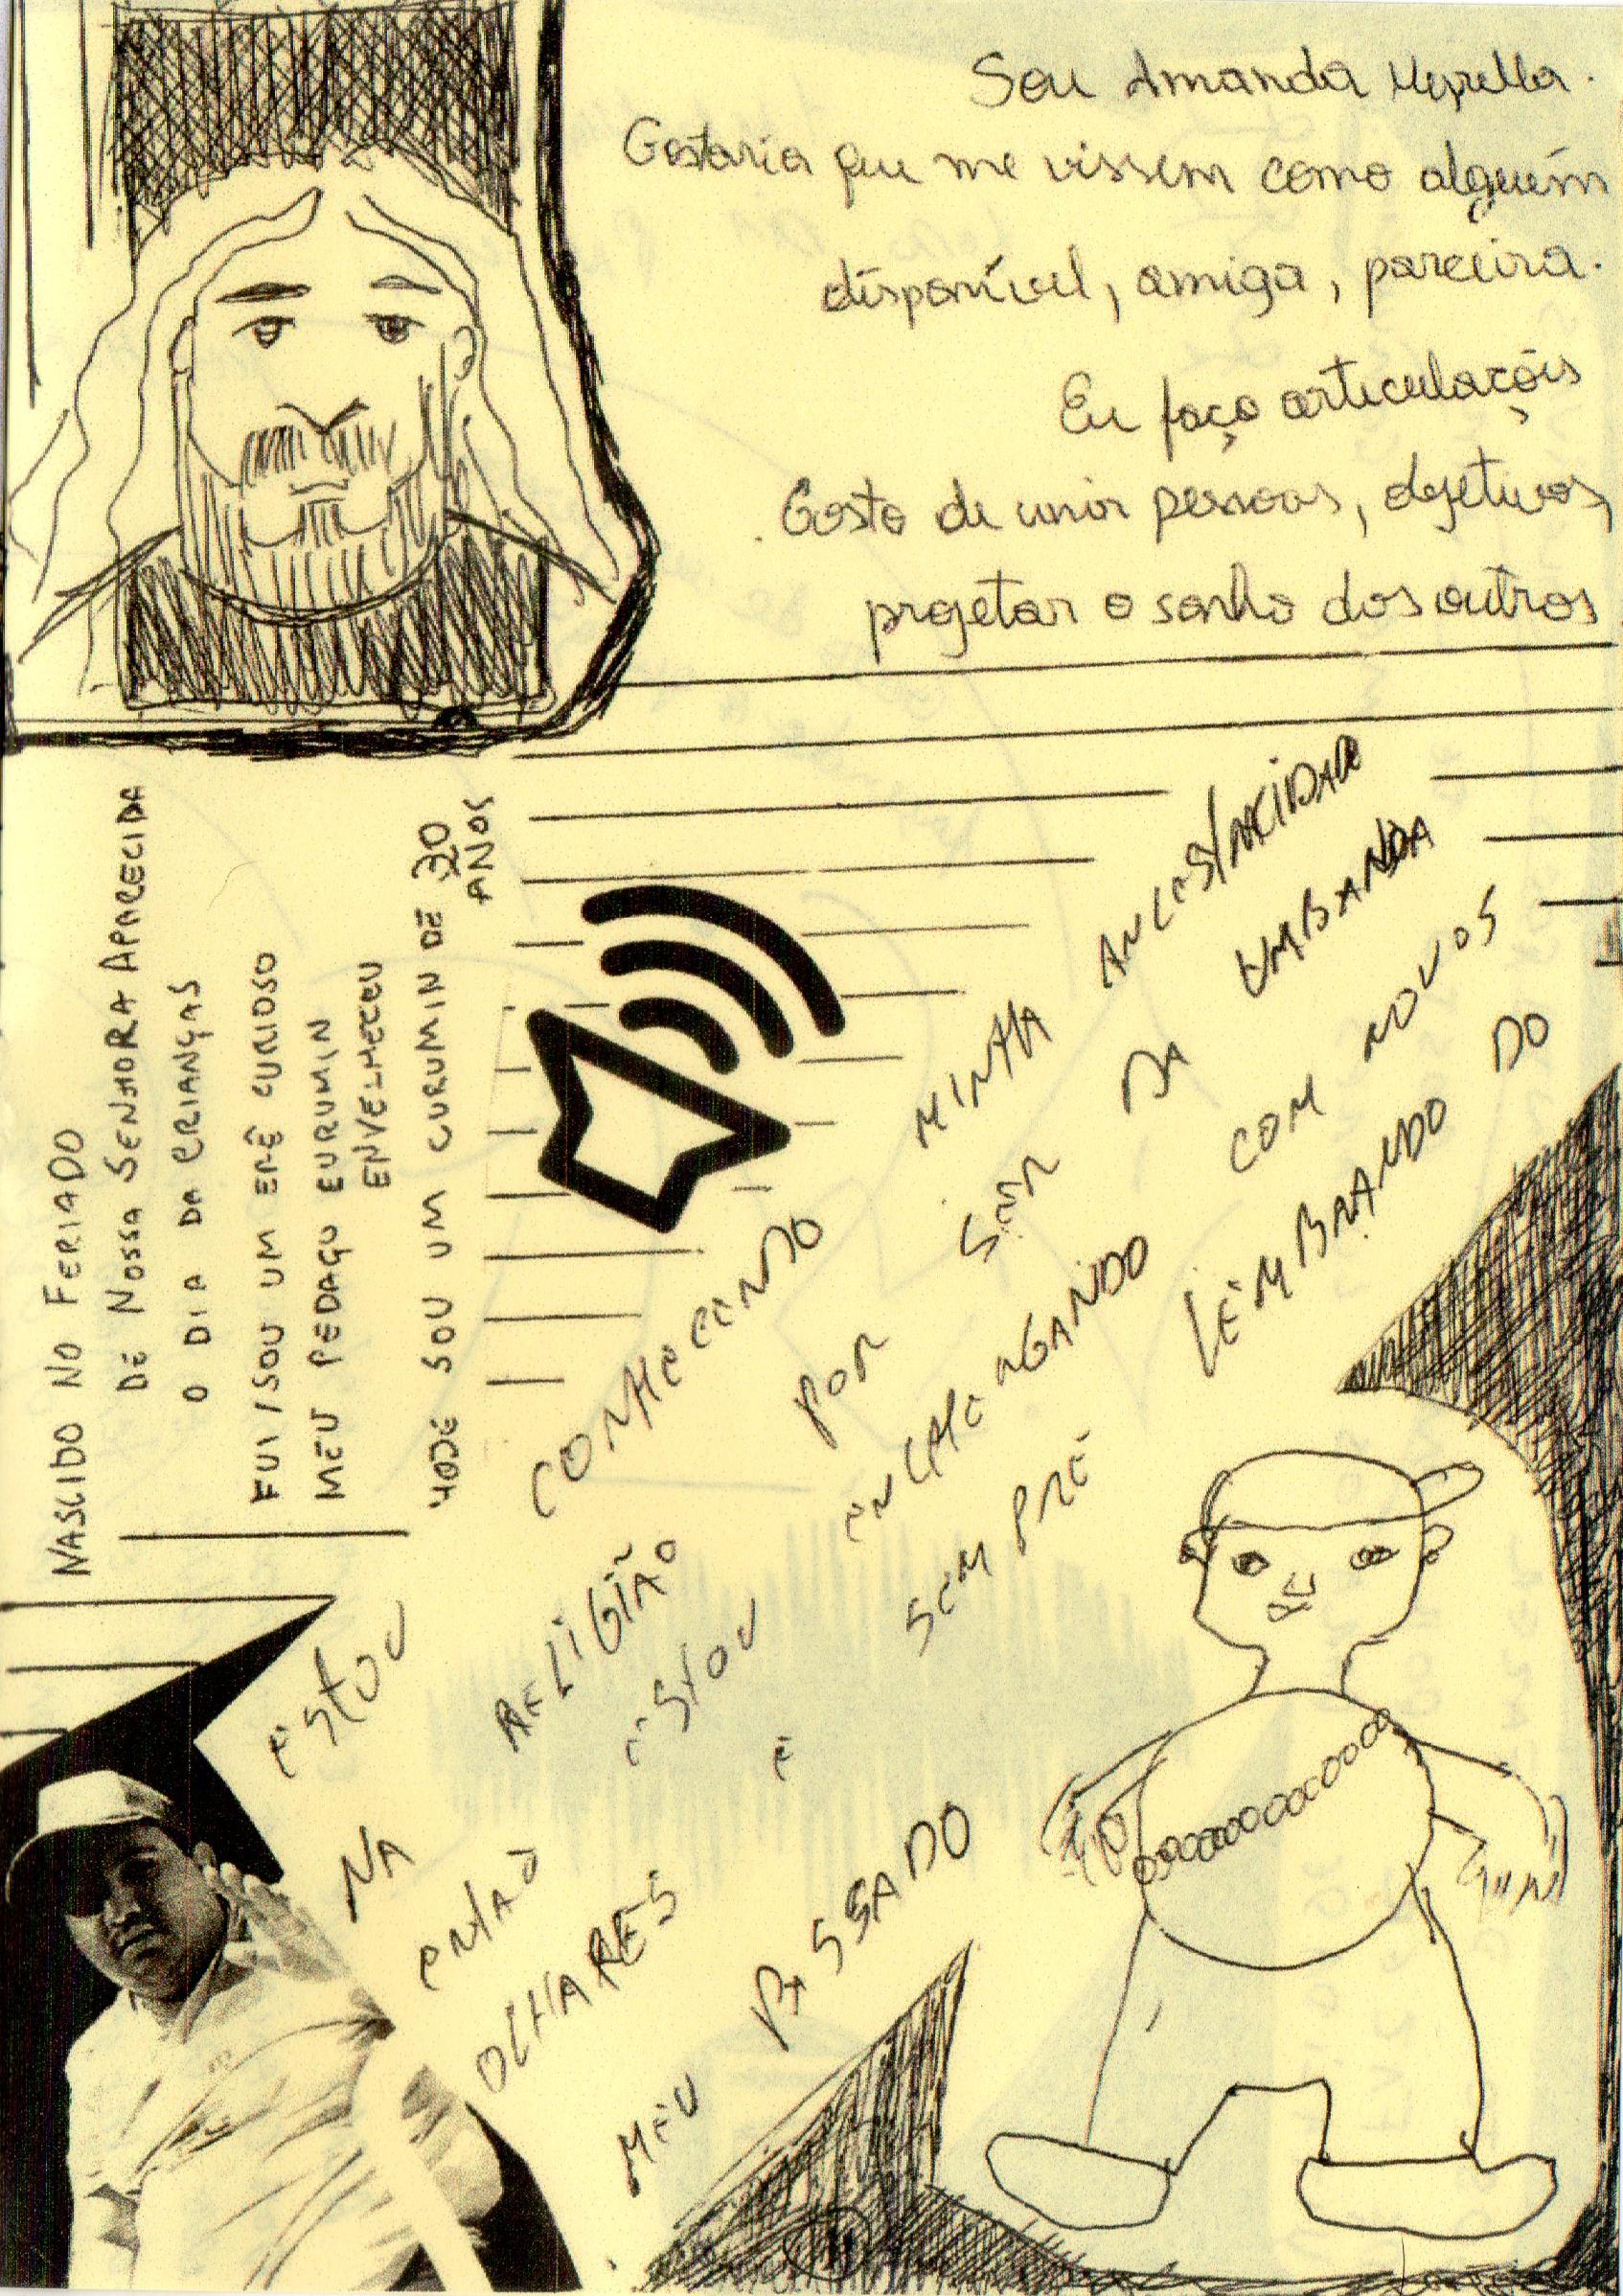 Sou Amanda
Gostaria que me vissem como alguém
disponível, amiga, parceira.
Eu faço articulações
Gosto de unir pessoas, objetivos,
projetar o sonho dos outros
NASCIDO NO FERIADO
DE NOSSA SENHORA APARECIDA
O DIA DA CRIANÇAS
FUI / SOU UM ERÊ CURIOSO
MEU PEDAÇU CURUMIN
ENVELHECEU
HOJE SOU UM CURUMIN DE 30
ANOS
ESTOU CONHECENDO MINHA ANCESTRACIDADE
NA RELIGIÃO POR SER DA UMBANDA
ENTÃO ESTOU ENCHERGANDO COM NOVOS
OLHARES E SEMPRE LEMBRANDO DO
MEU PASSADO